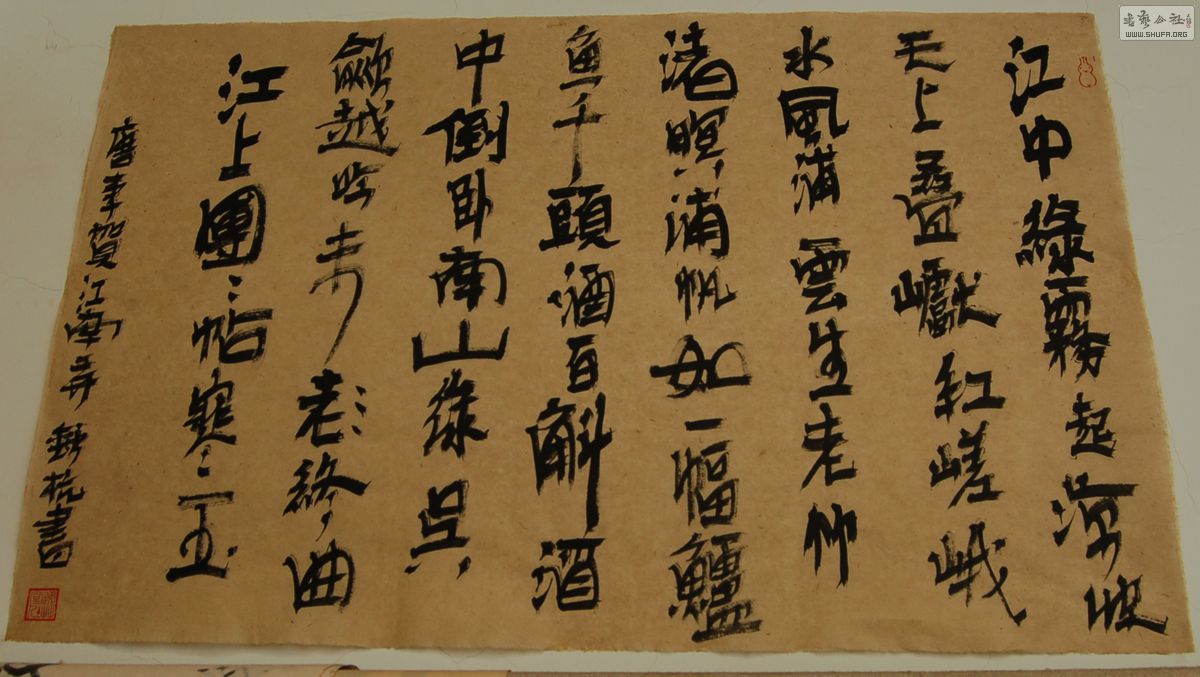 江中綠霧起涼波
天上疊巘紅嵯峨
水風浦雲生老竹
渚暝浦帆如一幅鱸
魚千頭酒百斛酒
中倒臥南山綠吳
歈越吟未老終曲
江上團〻帖寒玉
唐李賀江南弄 書
书艺公社
WWW.SHUFA.ORG